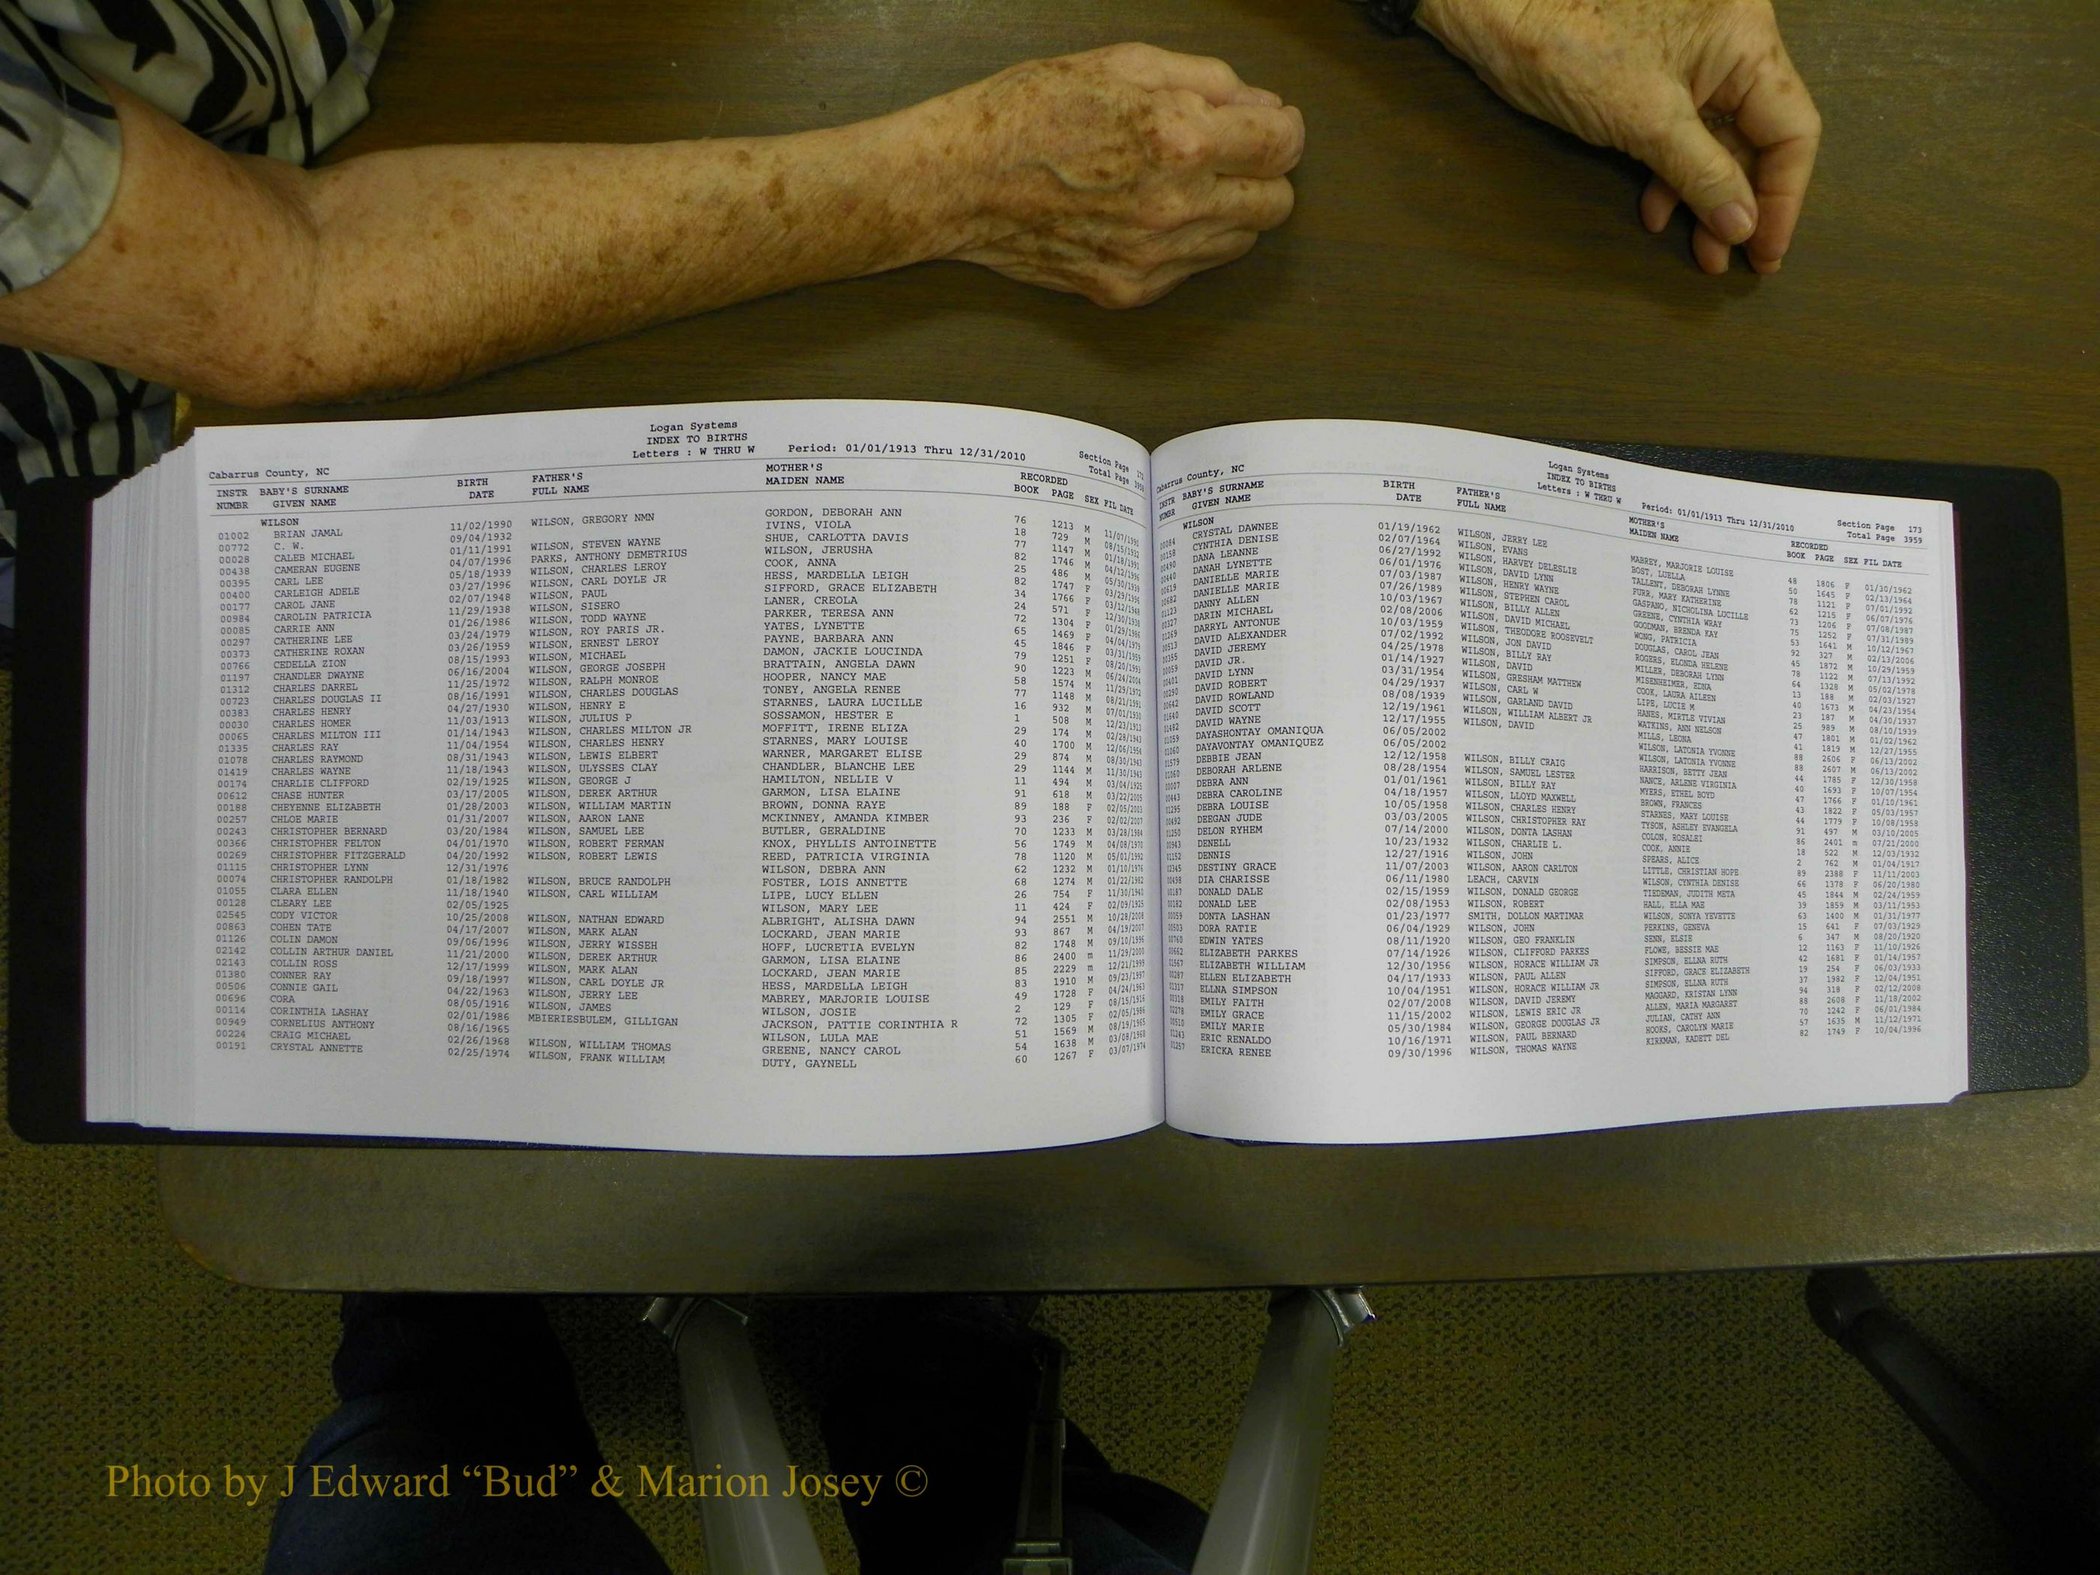 Logan Systems
INDEX TO BIRTHS
Letters : W THRU W Period: 01/01/1913 Thru 12/31/2010
Cabarrus County, NC Section Page 172
Total Page 3958
INSTR BABY'S SURNAME BIRTH FATHER'S MOTHER'S RECORDED
NUMBR GIVEN NAME DATE FULL NAME MAIDEN NAME BOOK PAGE SEX FIL DATE
WILSON
01002 BRIAN JAMAL 11/02/1990 WILSON, GREGORY NMN GORDON, DEBORAH ANN 76 1213 M 11/07/1990
00772 C. W. 09/04/1932 IVINS, VIOLA 18 729 M 08/15/1932
00028 CALEB MICHAEL 01/11/1991 WILSON, STEVEN WAYNE SHUE, CARLOTTA DAVIS 77 1147 M 01/18/1991
00438 CAMERAN EUGENE 04/07/1996 PARKS, ANTHONY DEMETRIUS WILSON, JERUSHA 82 1746 M 04/12/1996
00395 CARL LEE 05/18/1939 WILSON, CHARLES LEROY COOK, ANNA 25 486 M 05/30/1939
00400 CARLEIGH ADELE 03/27/1996 WILSON, CARL DOYLE JR HESS, MARDELLA LEIGH 82 1747 F 03/29/1996
00177 CAROL JANE 02/07/1948 WILSON, PAUL SIFFORD, GRACE ELIZABETH 34 1766 F 03/12/1948
00984 CAROLIN PATRICIA 11/29/1938 WILSON, SISERO LANER, CREOLA 24 571 F 12/30/1938
00085 CARRIE ANN 01/26/1986 WILSON, TODD WAYNE PARKER, TERESA ANN 72 1304 F 01/29/1986
00297 CATHERINE LEE 03/24/1979 WILSON, ROY PARIS JR. YATES, LYNETTE 65 1469 F 04/04/1979
00373 CATHERINE ROXAN 03/26/1959 WILSON, ERNEST LEROY PAYNE, BARBARA ANN 45 1846 F 03/31/1959
00766 CEDELLA ZION 08/15/1993 WILSON, MICHAEL DAMON, JACKIE LOUCINDA 79 1251 F 08/20/1993
01197 CHANDLER DWAYNE 06/16/2004 WILSON, GEORGE JOSEPH BRATTAIN, ANGELA DAWN 90 1223 M 06/24/2004
01312 CHARLES DARREL 11/25/1972 WILSON, RALPH MONROE HOOPER, NANCY MAE 58 1574 M 11/29/1972
00723 CHARLES DOUGLAS II 08/16/1991 WILSON, CHARLES DOUGLAS TONEY, ANGELA RENEE 77 1148 M 08/21/1991
00383 CHARLES HENRY 04/27/1930 WILSON, HENRY E STARNES, LAURA LUCILLE 16 932 M 07/01/1930
00030 CHARLES HOMER 11/03/1913 WILSON, JULIUS P SOSSAMON, HESTER E 1 508 M 12/23/1913
00065 CHARLES MILTON III 01/14/1943 WILSON, CHARLES MILTON JR MOFFITT, IRENE ELIZA 29 174 M 02/28/1943
01335 CHARLES RAY 11/04/1954 WILSON, CHARLES HENRY STARNES, MARY LOUISE 40 1700 M 12/06/1954
01078 CHARLES RAYMOND 08/31/1943 WILSON, LEWIS ELBERT WARNER, MARGARET ELISE 29 874 M 08/30/1943
01419 CHARLES WAYNE 11/18/1943 WILSON, ULYSSES CLAY CHANDLER, BLANCHE LEE 29 1144 M 11/30/1943
00174 CHARLIE CLIFFORD 02/19/1925 WILSON, GEORGE J HAMILTON, NELLIE V 11 494 M 03/04/1925
00612 CHASE HUNTER 03/17/2005 WILSON, DEREK ARTHUR GARMON, LISA ELAINE 91 618 M 03/22/2005
00188 CHEYENNE ELIZABETH 01/28/2003 WILSON, WILLIAM MARTIN BROWN, DONNA RAYE 89 188 F 02/05/2003
00257 CHLOE MARIE 01/31/2007 WILSON, AARON LANE MCKINNEY, AMANDA KIMBER 93 236 F 02/02/2007
00243 CHRISTOPHER BERNARD 03/20/1984 WILSON, SAMUEL LEE BUTLER, GERALDINE 70 1233 M 03/28/1984
00366 CHRISTOPHER FELTON 04/01/1970 WILSON, ROBERT FERMAN KNOX, PHYLLIS ANTOINETTE 56 1749 M 04/08/1970
00269 CHRISTOPHER FITZGERALD 04/20/1992 WILSON, ROBERT LEWIS REED, PATRICIA VIRGINIA 78 1120 M 05/01/1992
01115 CHRISTOPHER LYNN 12/31/1976 WILSON, DEBRA ANN 62 1232 M 01/10/1976
00074 CHRISTOPHER RANDOLPH 01/18/1982 WILSON, BRUCE RANDOLPH FOSTER, LOIS ANNETTE 68 1274 M 01/22/1982
01055 CLARA ELLEN 11/18/1940 WILSON, CARL WILLIAM LIPE, LUCY ELLEN 26 754 F 11/30/1940
00128 CLEARY LEE 02/05/1925 WILSON, MARY LEE 11 424 F 02/09/1925
02545 CODY VICTOR 10/25/2008 WILSON, NATHAN EDWARD ALBRIGHT, ALISHA DAWN 94 2551 M 10/28/2008
00863 COHEN TATE 04/17/2007 WILSON, MARK ALAN LOCKARD, JEAN MARIE 93 867 M 04/19/2007
01126 COLIN DAMON 09/06/1996 WILSON, JERRY WISSEH HOFF, LUCRETIA EVELYN 82 1748 M 09/10/1996
02142 COLLIN ARTHUR DANIEL 11/21/2000 WILSON, DEREK ARTHUR GARMON, LISA ELAINE 86 2400 m 11/29/2000
02143 COLLIN ROSS 12/17/1999 WILSON, MARK ALAN LOCKARD, JEAN MARIE 85 2229 m 12/21/1999
01380 CONNER RAY 09/18/1997 WILSON, CARL DOYLE JR HESS, MARDELLA LEIGH 83 1910 M 09/23/1997
00506 CONNIE GAIL 04/22/1963 WILSON, JERRY LEE MABREY, MARJORIE LOUISE 49 1728 F 04/24/1963
00696 CORA 08/05/1916 WILSON, JAMES WILSON, JOSIE 2 129 F 08/15/1916
00114 CORINTHIA LASHAY 02/01/1986 MBIERIESBULEM, GILLIGAN JACKSON, PATTIE CORINTHIA R 72 1305 F 02/05/1986
00949 CORNELIUS ANTHONY 08/16/1965 WILSON, LULA MAE 51 1569 M 08/19/1965
00224 CRAIG MICHAEL 02/26/1968 WILSON, WILLIAM THOMAS GREENE, NANCY CAROL 54 1638 M 03/08/1968
00191 CRYSTAL ANNETTE 02/25/1974 WILSON, FRANK WILLIAM DUTY, GAYNELL 60 1267 F 03/07/1974
Logan Systems
INDEX TO BIRTHS
Letters : W THRU W Period: 01/01/1913 Thru 12/31/2010
Cabarrus County, NC Section Page 173
Total Page 3959
INSTR BABY'S SURNAME BIRTH FATHER'S MOTHER'S RECORDED
NUMBR GIVEN NAME DATE FULL NAME MAIDEN NAME BOOK PAGE SEX FIL DATE
WILSON
00084 CRYSTAL DAWNEE 01/19/1962 WILSON, JERRY LEE MABREY, MARJORIE LOUISE 48 1806 F 01/30/1962
00158 CYNTHIA DENISE 02/07/1964 WILSON, EVANS BOST, LUELLA 50 1645 F 02/13/1964
00490 DANA LEANNE 06/27/1992 WILSON, HARVEY DELESLIE TALLENT, DEBORAH LYNNE 78 1121 F 07/01/1992
00440 DANAH LYNETTE 06/01/1976 WILSON, DAVID LYNN FURR, MARY KATHERINE 62 1215 F 06/07/1976
00619 DANIELLE MARIE 07/03/1987 WILSON, HENRY WAYNE GASPANO, NICHOLINA LUCILLE 73 1206 F 07/08/1987
00682 DANIELLE MARIE 07/26/1989 WILSON, STEPHEN CAROL GREENE, CYNTHIA WRAY 75 1252 F 07/31/1989
01123 DANNY ALLEN 10/03/1967 WILSON, BILLY ALLEN GOODMAN, BRENDA KAY 53 1641 M 10/12/1967
00327 DARIN MICHAEL 02/08/2006 WILSON, DAVID MICHAEL WONG, PATRICIA 92 327 M 02/13/2006
01269 DARRYL ANTONUE 10/03/1959 WILSON, THEODORE ROOSEVELT DOUGLAS, CAROL JEAN 45 1872 M 10/29/1959
00513 DAVID ALEXANDER 07/02/1992 WILSON, JON DAVID ROGERS, ELONDA HELENE 78 1122 M 07/13/1992
00355 DAVID JEREMY 04/25/1978 WILSON, BILLY RAY MILLER, DEBORAH LYNN 64 1328 M 05/02/1978
00059 DAVID JR. 01/14/1927 WILSON, DAVID MISENHEIMER, EDNA 13 188 M 02/03/1927
00401 DAVID LYNN 03/31/1954 WILSON, GRESHAM MATTHEW COOK, LAURA AILEEN 40 1673 M 04/23/1954
00290 DAVID ROBERT 04/29/1937 WILSON, CARL W LIPE, LUCIE M 23 187 M 04/30/1937
00642 DAVID ROWLAND 08/08/1939 WILSON, GARLAND DAVID HANES, MIRTLE VIVIAN 25 989 M 08/10/1939
01640 DAVID SCOTT 12/19/1961 WILSON, WILLIAM ALBERT JR WATKINS, ANN NELSON 47 1801 M 01/02/1962
01482 DAVID WAYNE 12/17/1955 WILSON, DAVID MILLS, LEONA 41 1819 M 12/27/1955
01059 DAYASHONTAY OMANIQUA 06/05/2002 WILSON, LATONIA YVONNE 88 2606 F 06/13/2002
01060 DAYAVONTAY OMANIQUEZ 06/05/2002 WILSON, LATONIA YVONNE 88 2607 M 06/13/2002
01579 DEBBIE JEAN 12/12/1958 WILSON, BILLY CRAIG HARRISON, BETTY JEAN 44 1785 F 12/30/1958
01060 DEBORAH ARLENE 08/28/1954 WILSON, SAMUEL LESTER NANCE, ARLENE VIRGINIA 40 1693 F 10/07/1954
00007 DEBRA ANN 01/01/1961 WILSON, BILLY RAY MYERS, ETHEL BOYD 47 1766 F 01/10/1961
00443 DEBRA CAROLINE 04/18/1957 WILSON, LLOYD MAXWELL BROWN, FRANCES 43 1822 F 05/03/1957
01295 DEBRA LOUISE 10/05/1958 WILSON, CHARLES HENRY STARNES, MARY LOUISE 44 1779 F 10/08/1958
00492 DEEGAN JUDE 03/03/2005 WILSON, CHRISTOPHER RAY TYSON, ASHLEY EVANGELA 91 497 M 03/10/2005
01250 DELON RYHEM 07/14/2000 WILSON, DONTA LASHAN COLON, ROSALEI 86 2401 m 07/21/2000
00943 DENELL 10/23/1932 WILSON, CHARLIE L. COOK, ANNIE 18 522 M 12/03/1932
01152 DENNIS 12/27/1916 WILSON, JOHN SPEARS, ALICE 2 762 M 01/04/1917
02345 DESTINY GRACE 11/07/2003 WILSON, AARON CARLTON LITTLE, CHRISTIAN HOPE 89 2388 F 11/11/2003
00498 DIA CHARISSE 06/11/1980 LEACH, CARVIN WILSON, CYNTHIA DENISE 66 1378 F 06/20/1980
00187 DONALD DALE 02/15/1959 WILSON, DONALD GEORGE TIEDEMAN, JUDITH META 45 1844 M 02/24/1959
00182 DONALD LEE 02/08/1953 WILSON, ROBERT HALL, ELLA MAE 39 1859 M 03/11/1953
00059 DONTA LASHAN 01/23/1977 SMITH, DOLLON MARTIMAR WILSON, SONYA YEVETTE 63 1400 M 01/31/1977
00503 DORA RATIE 06/04/1929 WILSON, JOHN PERKINS, GENEVA 15 641 F 07/03/1929
00760 EDWIN YATES 08/11/1920 WILSON, GEO FRANKLIN SENN, ELSIE 6 347 M 08/20/1920
00662 ELIZABETH PARKES 07/14/1926 WILSON, CLIFFORD PARKES FLOWE, BESSIE MAE 12 1163 F 11/10/1926
01567 ELIZABETH WILLIAM 12/30/1956 WILSON, HORACE WILLIAM JR SIMPSON, ELLNA RUTH 42 1681 F 01/14/1957
00297 ELLEN ELIZABETH 04/17/1933 WILSON, PAUL ALLEN SIFFORD, GRACE ELIZABETH 19 254 F 06/03/1933
01317 ELLNA SIMPSON 10/04/1951 WILSON, HORACE WILLIAM JR SIMPSON, ELLNA RUTH 37 1982 F 12/04/1951
00318 EMILY FAITH 02/07/2008 WILSON, DAVID JEREMY MAGGARD, KRISTAN LYNN 94 318 F 02/12/2008
02278 EMILY GRACE 11/15/2002 WILSON, LEWIS ERIC JR ALLEN, MARIA MARGARET 88 2608 F 11/18/2002
00510 EMILY MARIE 05/30/1984 WILSON, GEORGE DOUGLAS JR JULIAN, CATHY ANN 70 1242 F 06/01/1984
01243 ERIC RENALDO 10/16/1971 WILSON, PAUL BERNARD HOOKS, CAROLYN MARIE 57 1635 M 11/12/1971
01257 ERICKA RENEE 09/30/1996 WILSON, THOMAS WAYNE KIRKMAN, KADETT DEL 82 1749 F 10/04/1996
Photo by J Edward “Bud” & Marion Josey ©